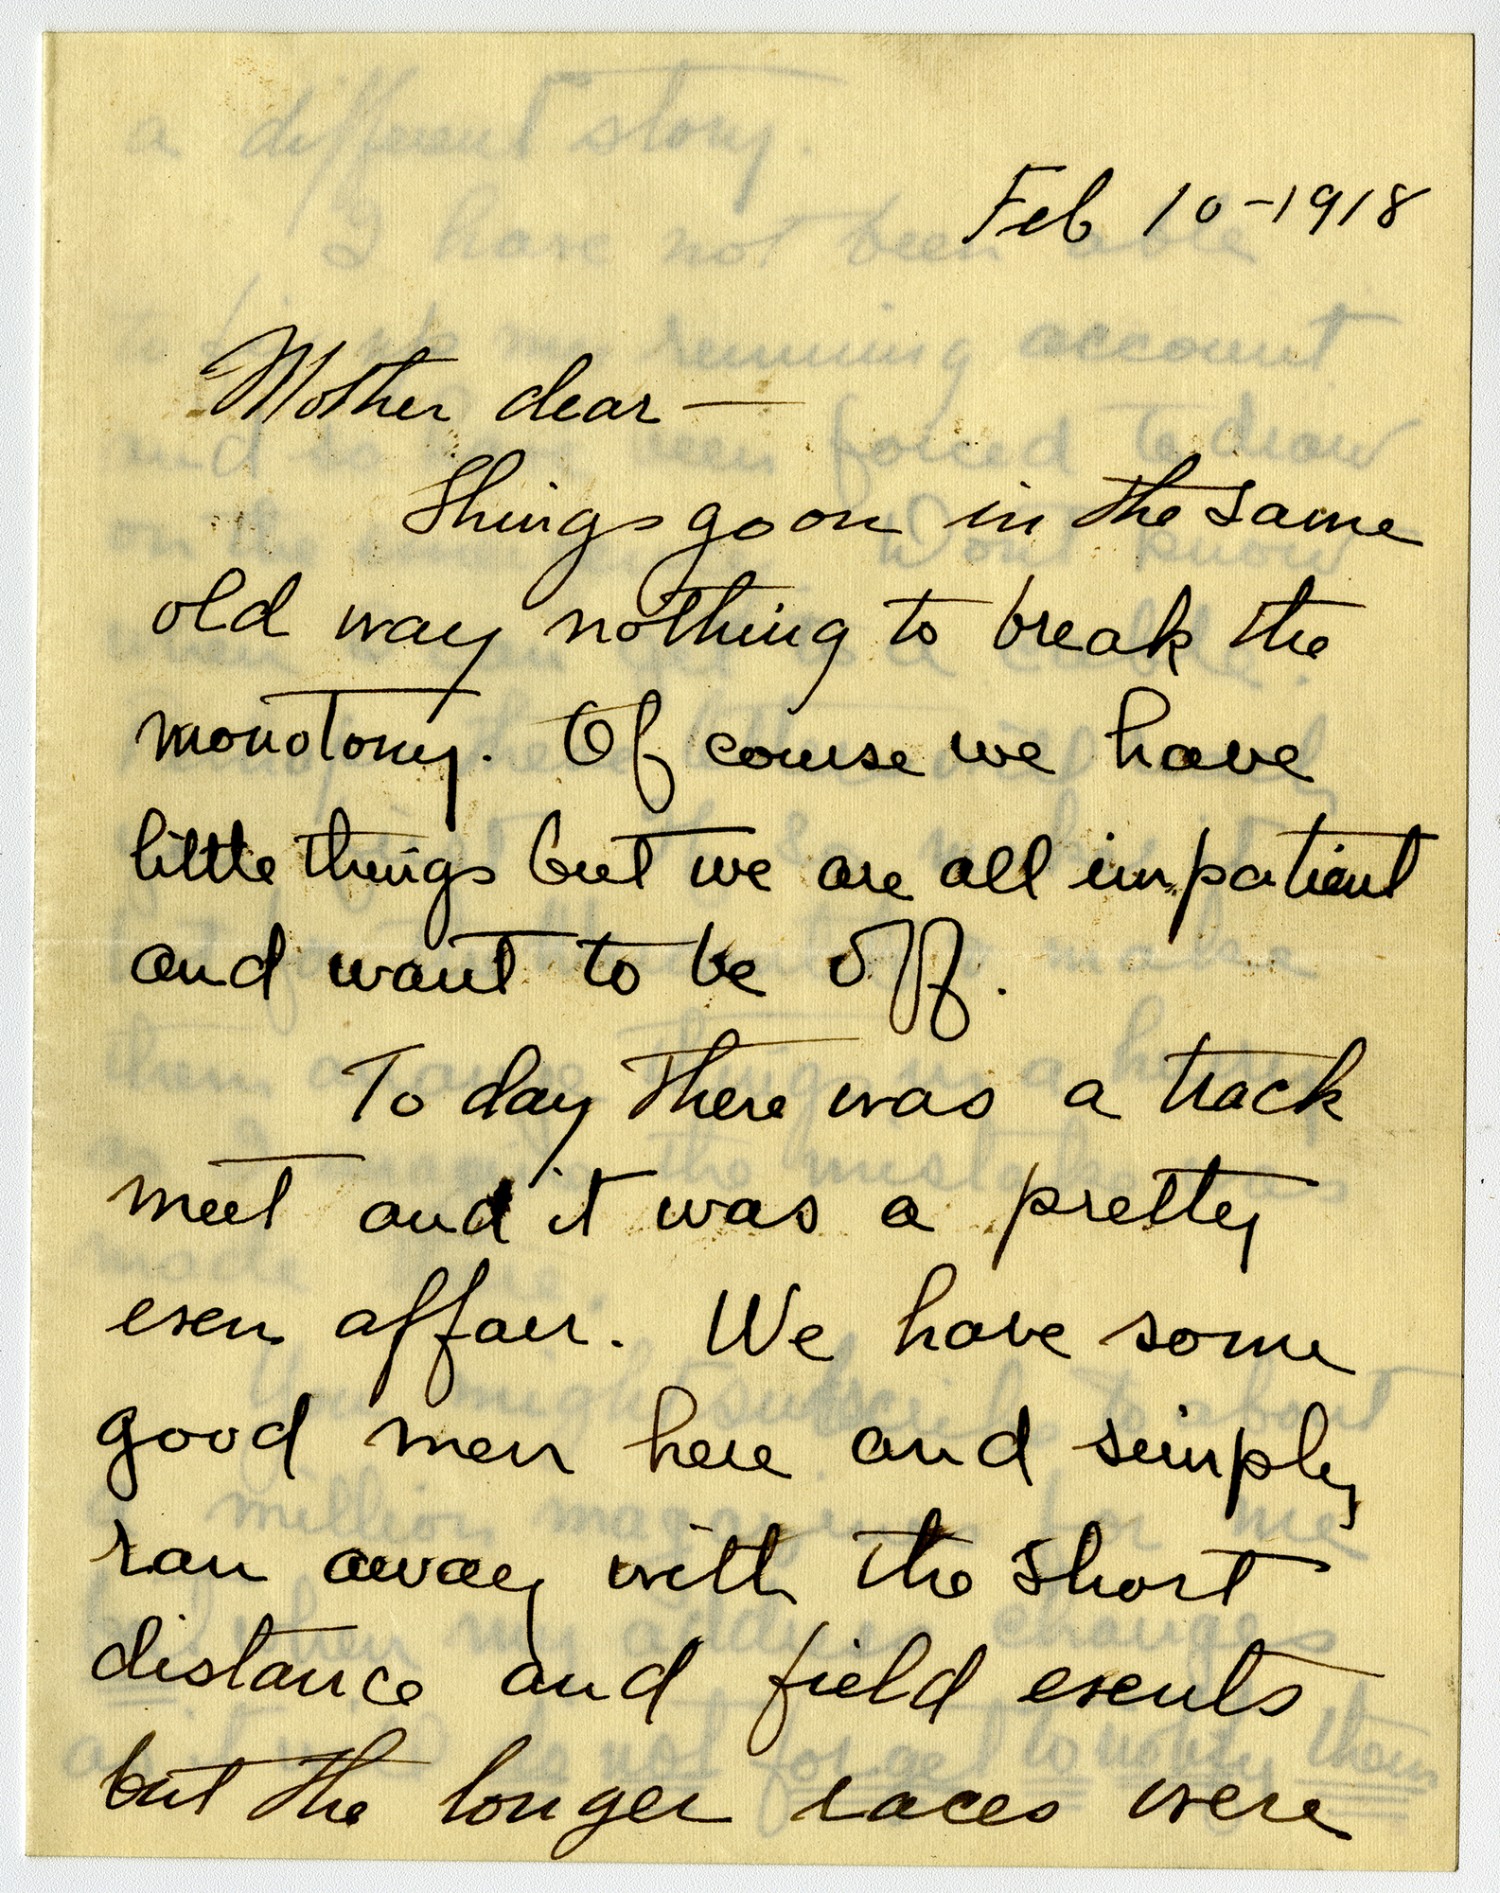 Feb 10-1918
Mother dear —
Things go on in the same
old way nothing to break the
monotony. Of course we have
little things but we are all impatient
and want to be off.
To day there was a track
meet and it was a pretty
even affair. We have some
good men here and simply
ran away with the short
distance and field events
but the longer races were